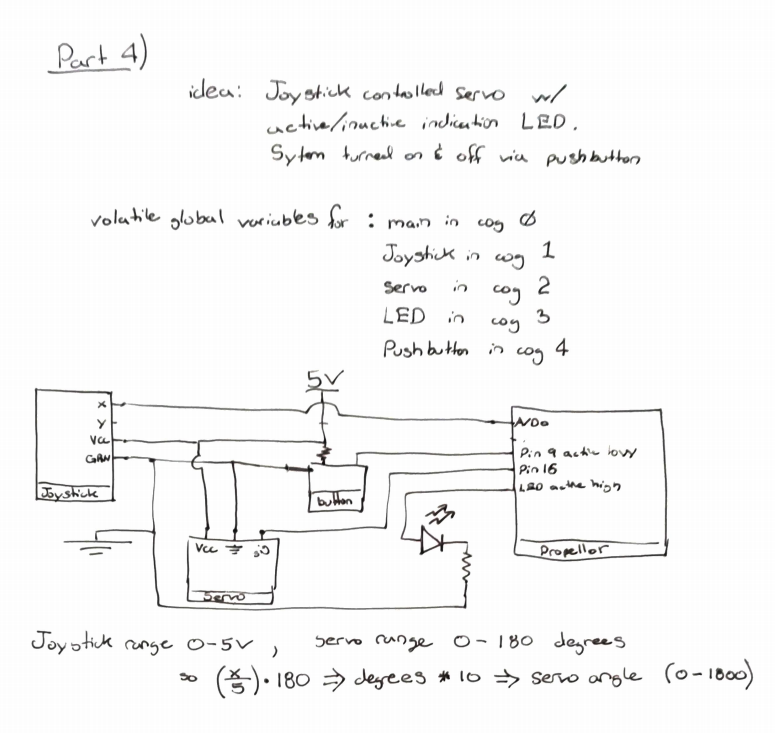 Part 4)
idea: Joystick controlled servo w/
active/inactive indication LED.
Sytem turned on & off via pushbutton
volatile global variables for : main in cog 0
Joystick in cog 1
servo in cog 2
LED in cog 3
Pushbutton in cog 4
5V
X
Y
Vcc
GRN
Joystick
button
A/D0
Pin 9 active low
Pin 16
LED active high
Propellor
Vcc
Servo
Joystick range 0-5V , servo range 0-180 degrees
so (x/5)·180 ⇒ degrees * 10 ⇒ servo angle (0-1800)